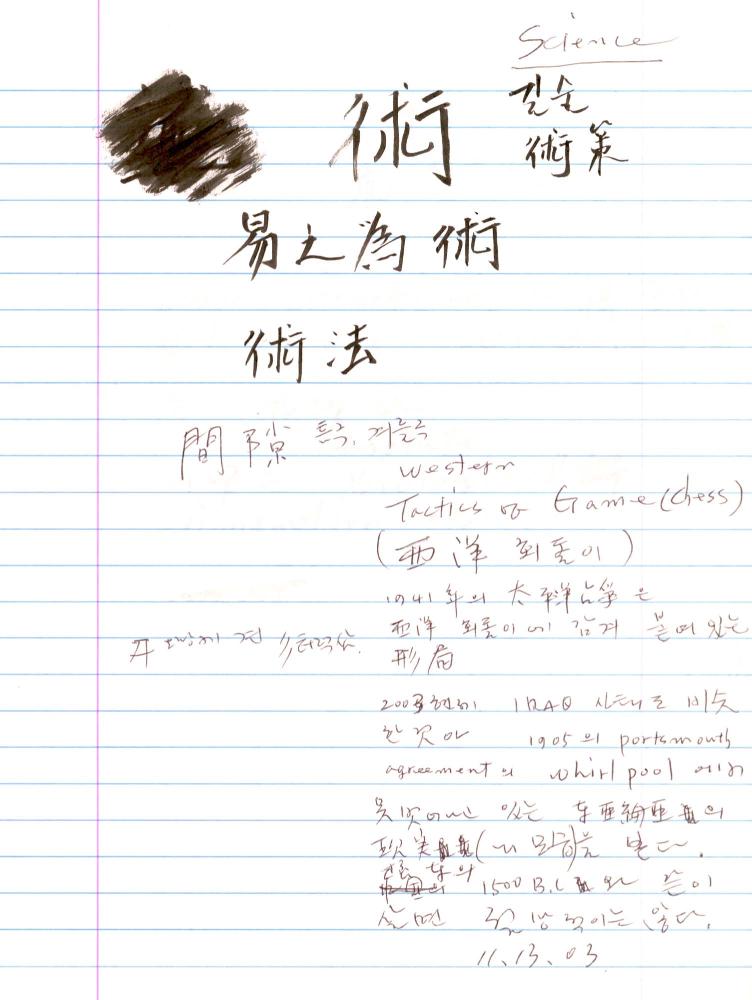 Science
術 길술
術策
易之為術
術法
間隙 틈극, 겨를극
Western
Tactics of Game (Chess)
(西洋 회돌이)
1941年의 太平洋 은
西洋 회돌이에 감겨 붙어 있는
形局
2003 IRAQ 사태도 비슷
한 것이 1905의 portsmouth
agreement의 whirlpool에서
못 벗어나고 있는 의
본다.
1500 B.C 와 같이
살면
않다.
11.13.03